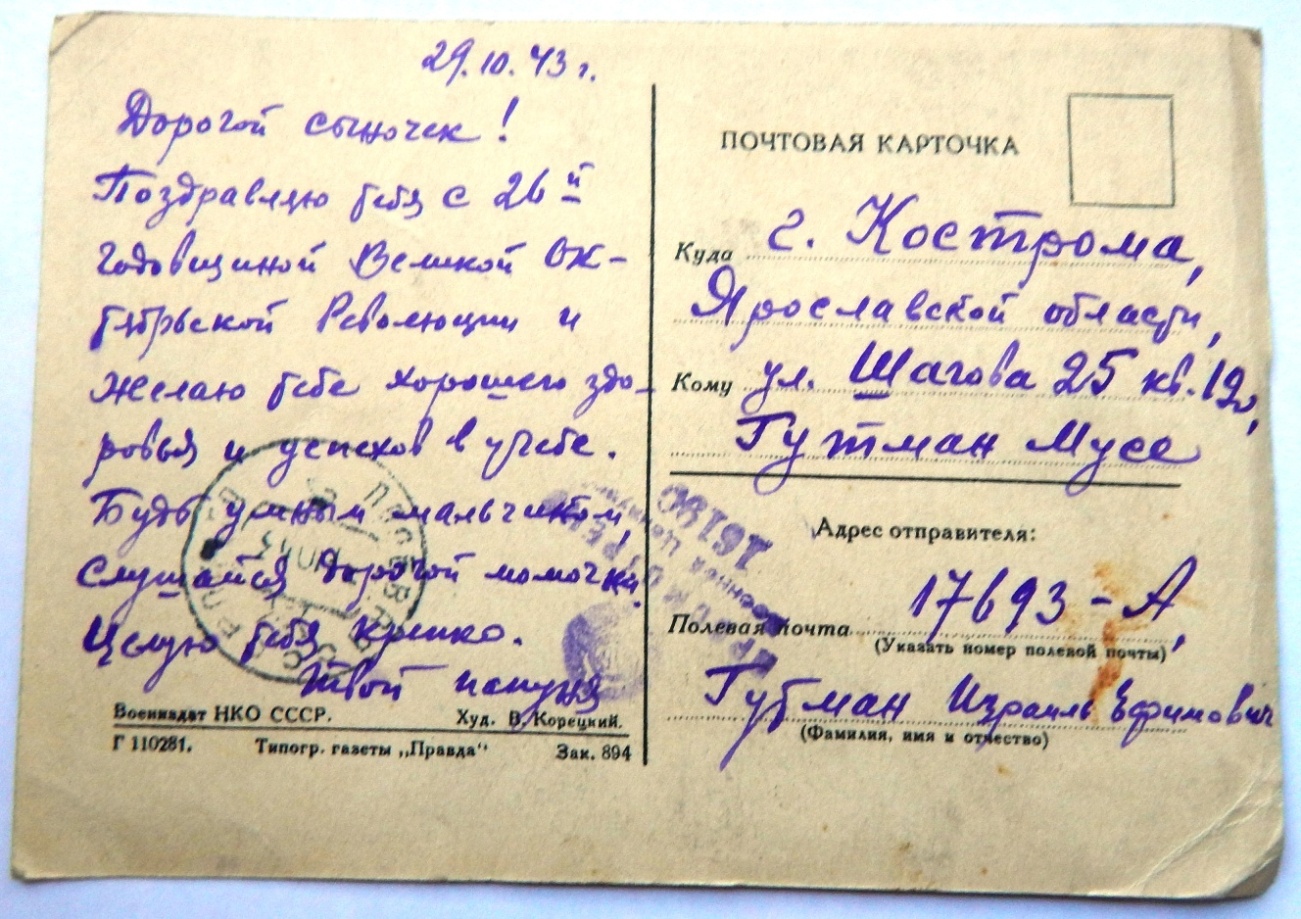 29.10.43 г.
Дорогой сыночек!
Поздравляю тебя с 26й
годовщиной Великой Ок-
тябрьской Революции и
желаю тебе хорошего здо-
ровья и успехов в учебе.
Будь умным мальчиком,
слушайся дорогой мамочки.
Целую тебя крепко.
Твой папуня
Воениздат НКО СССР. Худ. В. Корецкий.
Г 110281. Типогр. газеты „Правда“ Зак. 894
ПОЧТОВАЯ КАРТОЧКА
Куда г. Кострома,
Ярославской области,
Кому ул. Шагова 25 кв. 12,
Гутман Мусе
Адрес отправителя:
Полевая почта 17693-А,
(Указать номер полевой почты)
Гутман Израиль Ефимович
(Фамилия, имя и отчество)
16190